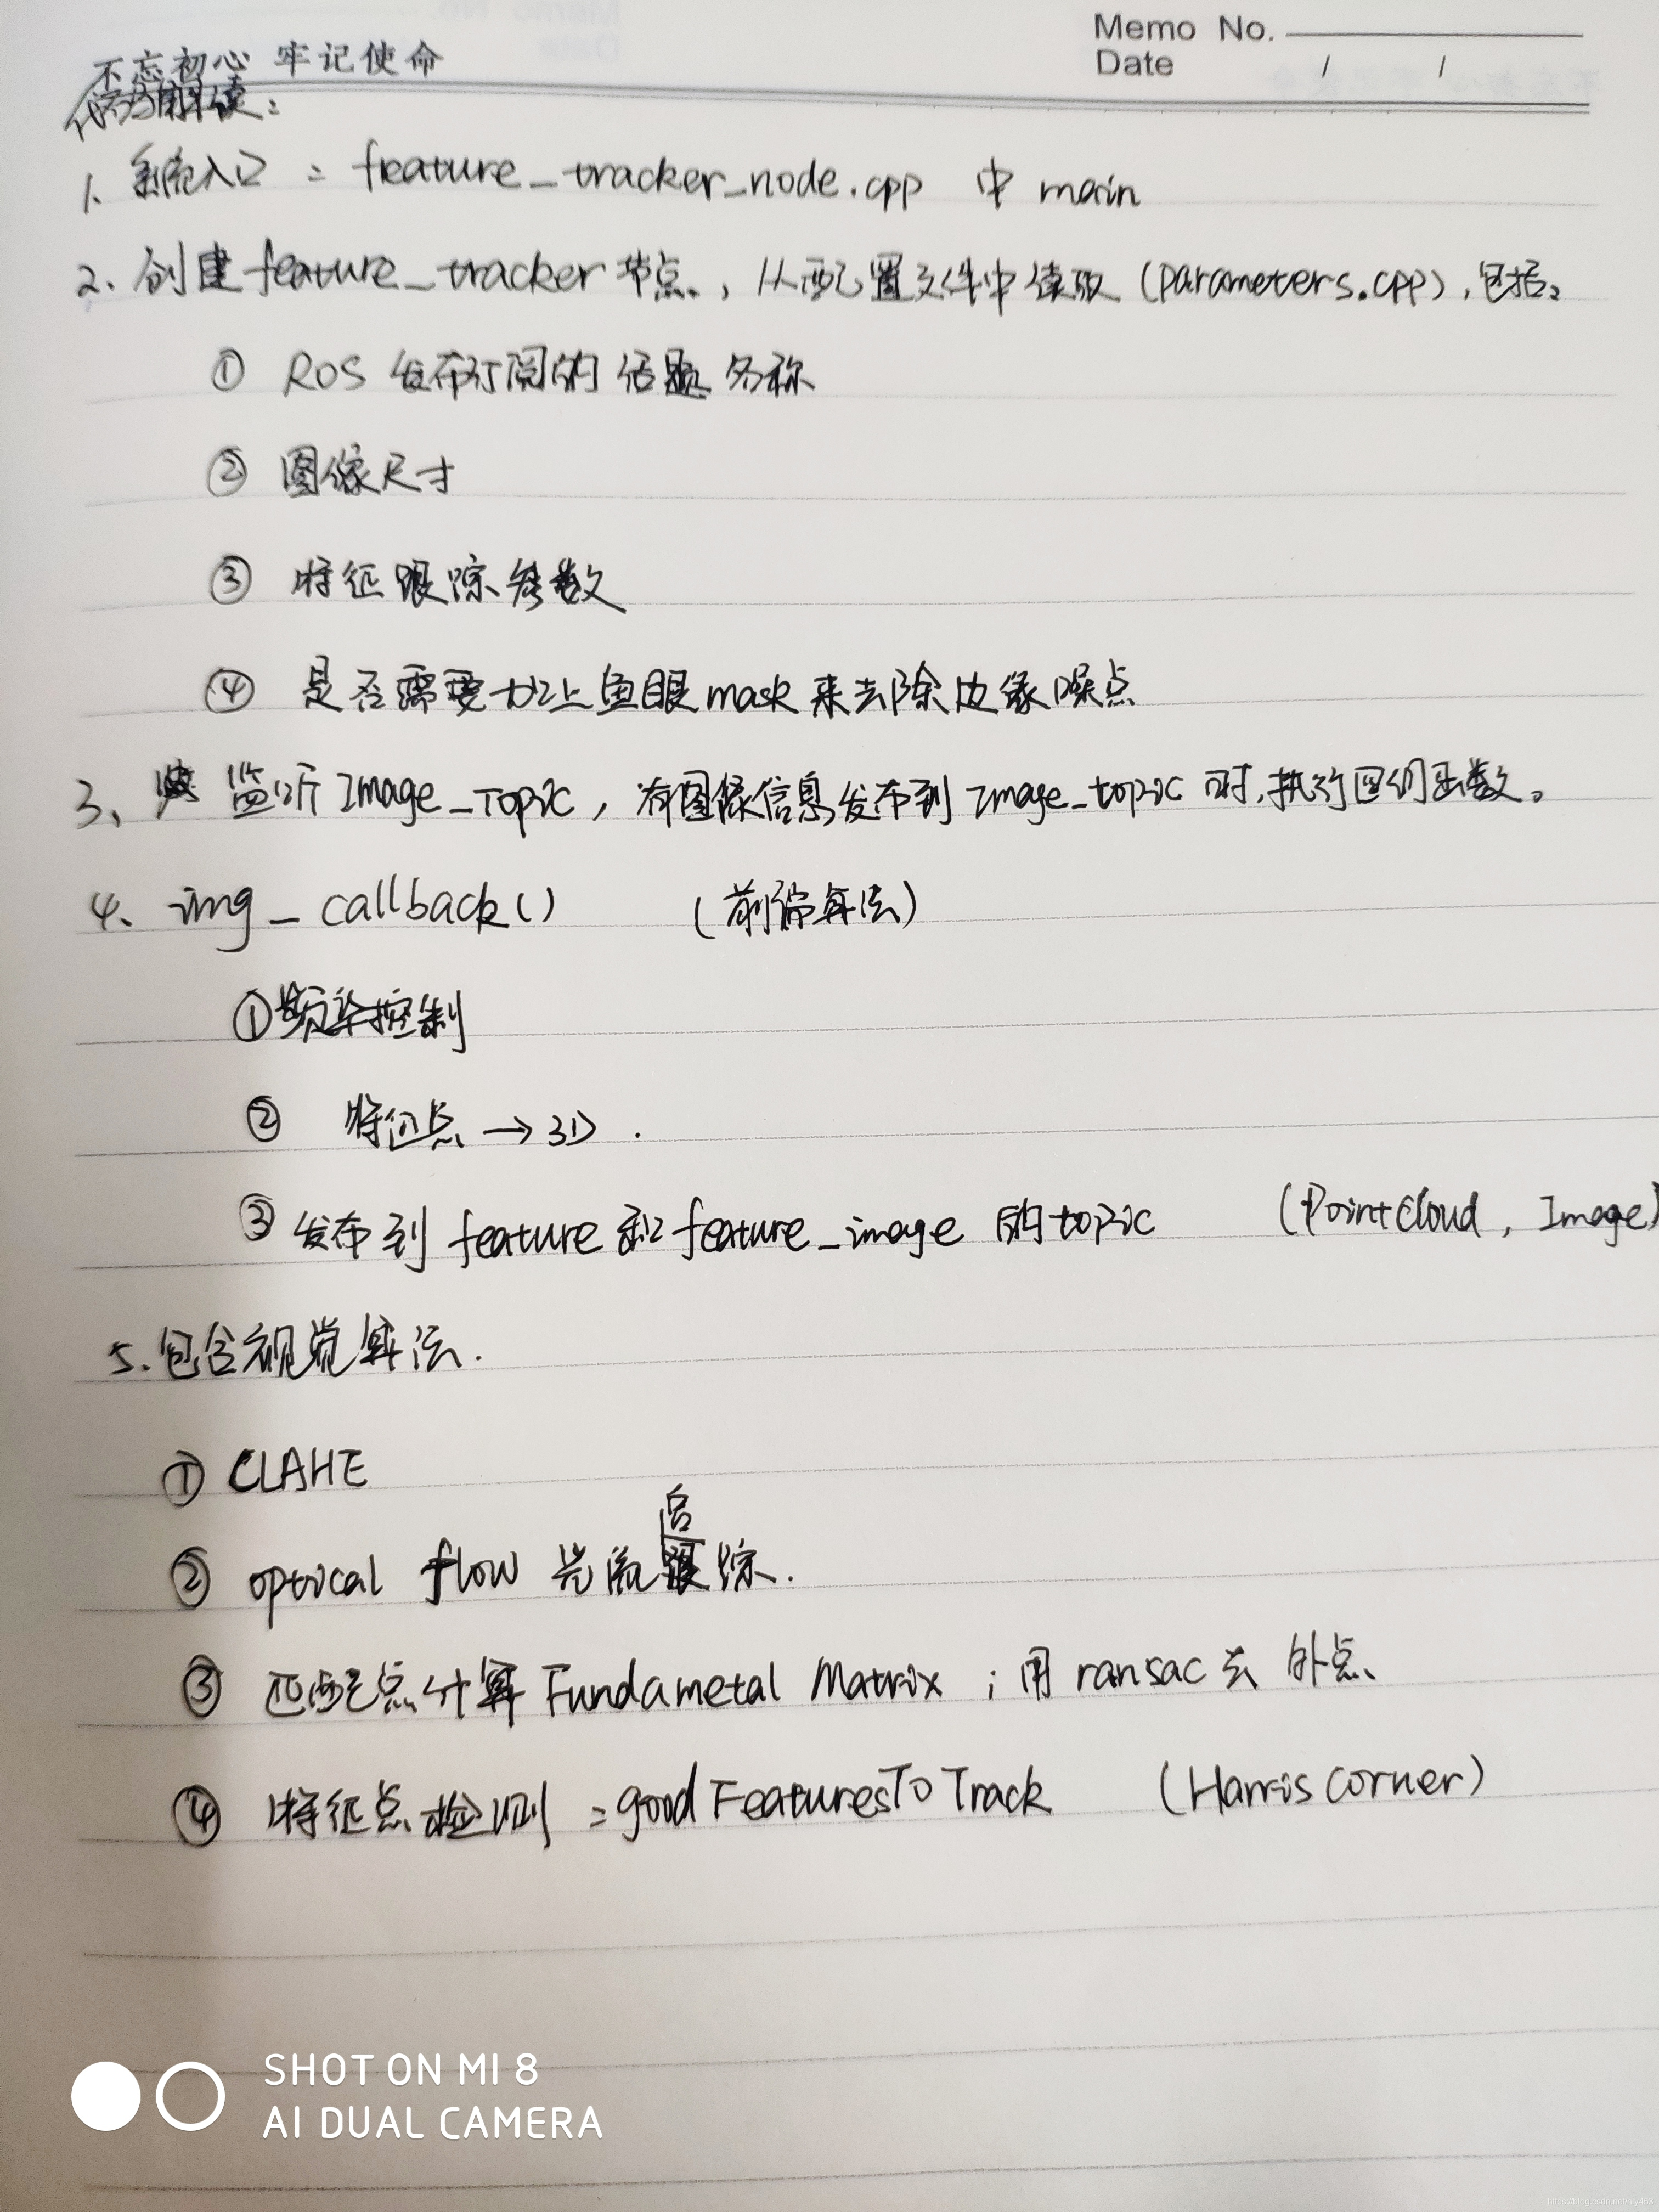 Memo No.
不忘初心 牢记使命
Date / /
代码解读：
1. 系统入口：feature_tracker_node.cpp 中 main
2. 创建feature_tracker节点，从配置文件中读取(parameters.cpp)，包括：
① ROS 发布订阅的话题名称
② 图像尺寸
③ 特征跟踪参数
④ 是否需要加上鱼眼mask来去除边缘噪点
3、监听Image_Topic，有图像信息发布到Image_topic时，执行回调函数。
4、img_callback() (前端算法)
① 频率控制
② 特征点→3D.
③ 发布到feature和feature_image的topic (PointCloud, Image)
5.包含视觉算法.
① CLAHE
② optical flow 光流跟踪.
③ 匹配点计算Fundametal Matrix；用ransac去外点
④ 特征点检测：goodFeaturesToTrack (Harris corner)
SHOT ON MI 8
AI DUAL CAMERA